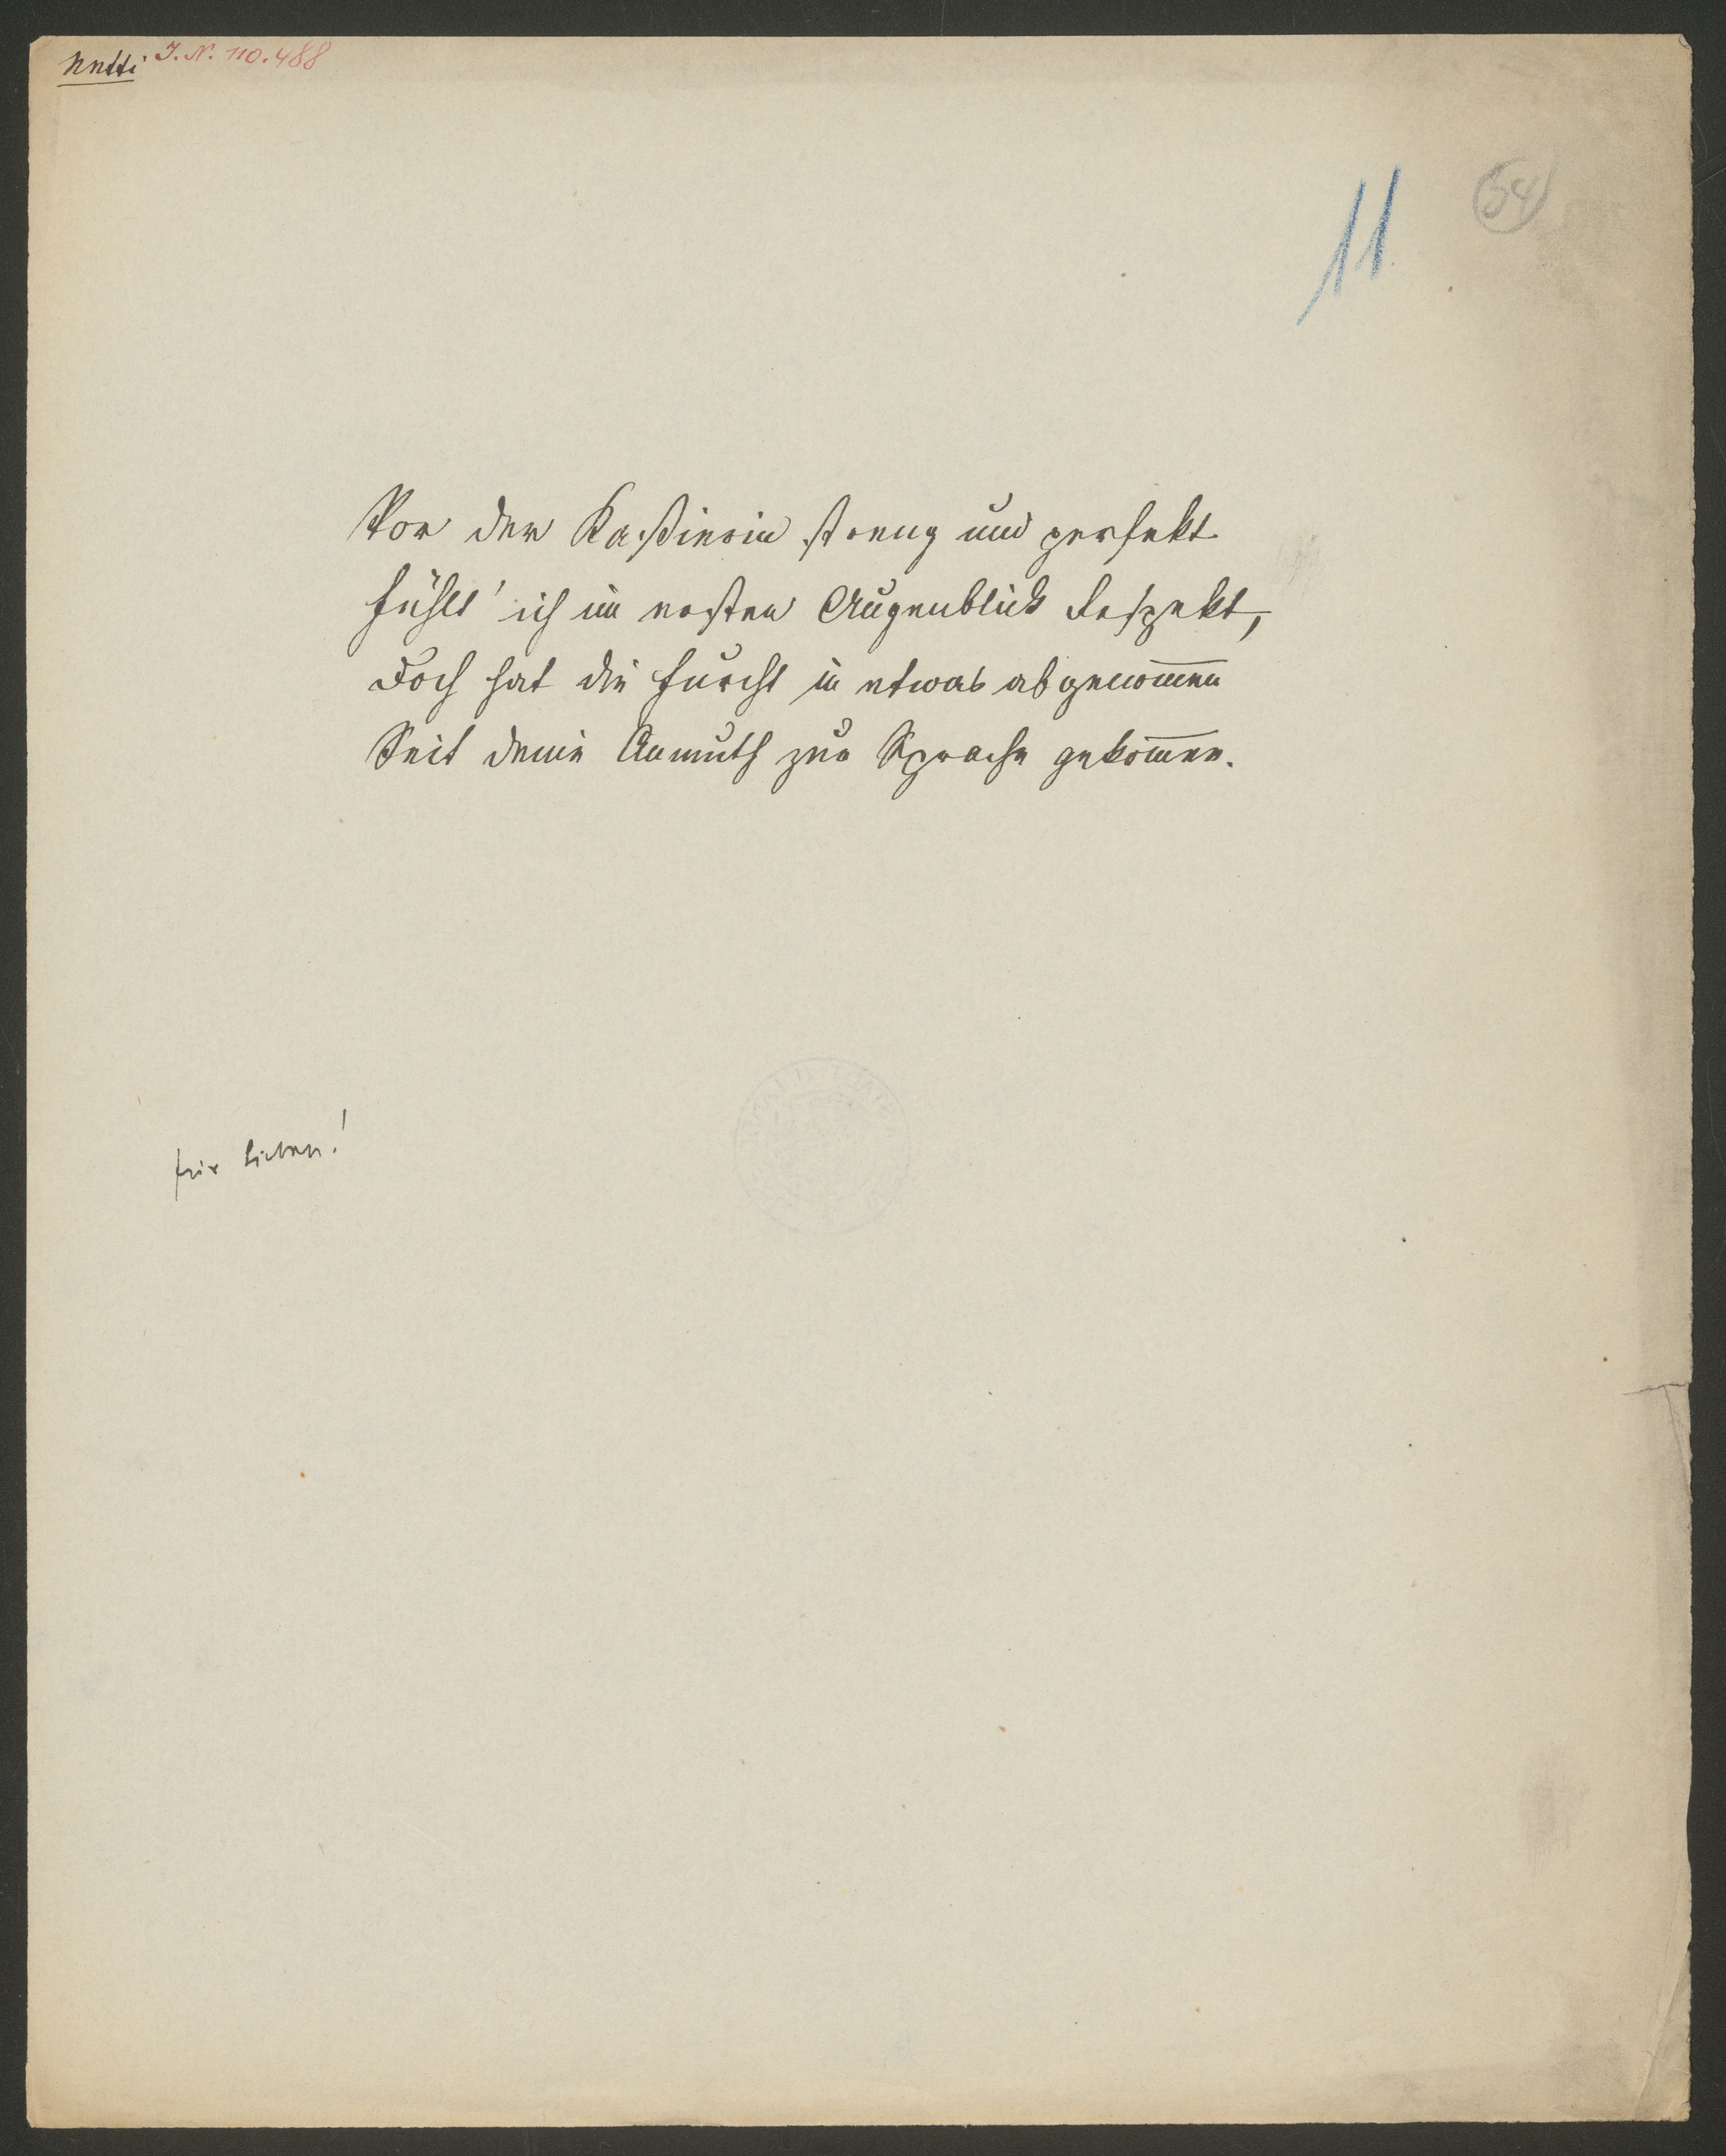 Netti J. N. 110.488
11
54
Vor der Kaßierin streng und perfekt
Fühlt' ich im ersten Augenblick Respekt,
Doch hat die Furcht in etwas abgenom̅en
Seit deine Anmuth zur Sprache gekom̅en.